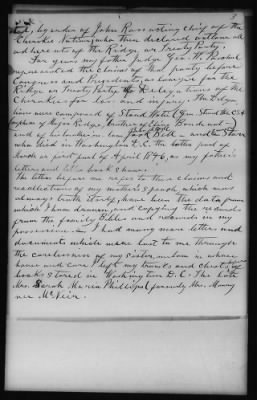 3
by order of John Ross acting chief of the
Cherokee Nation, who then declared outlaws all
adherents of the Ridge or Treaty Party.
For years my father Judge Geo. W. Paschal
represented the claims of that party before
Congress and Presidents, as lawyer for the
Ridge or Treaty Party Delegations of the
Cherokees for loss and injury. The Delega
tions were composed of Stand Watie (Gen. Stand Watie C.S.A.
nephew of Major Ridge, brother of Elias Boudinot)
and of his brother in law, Jack Bell and Starr
who died in Washington D.C. the latter part of
March or first part of April 1846, as my father's
letters and book shows.
The letters before me refer to these claims and
recollections of my mother's speech, which was
always truth itself, have been the data from
which I have drawn, and copying the records
from the family Bible and records in my
possession. I had many more letters and
documents which were lost to me through
the carelessness of my sister in law in whose
house and care I left my trunks and chests of
books stored in Washington D.C. The late
Mrs. Sarah Maria Phillips formerly Mrs.
nee McVeir.